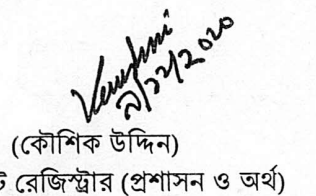 ৯/১২/২০২০
(কৌশিক উদ্দিন)
রেজিস্ট্রার (প্রশাসন ও অর্থ)